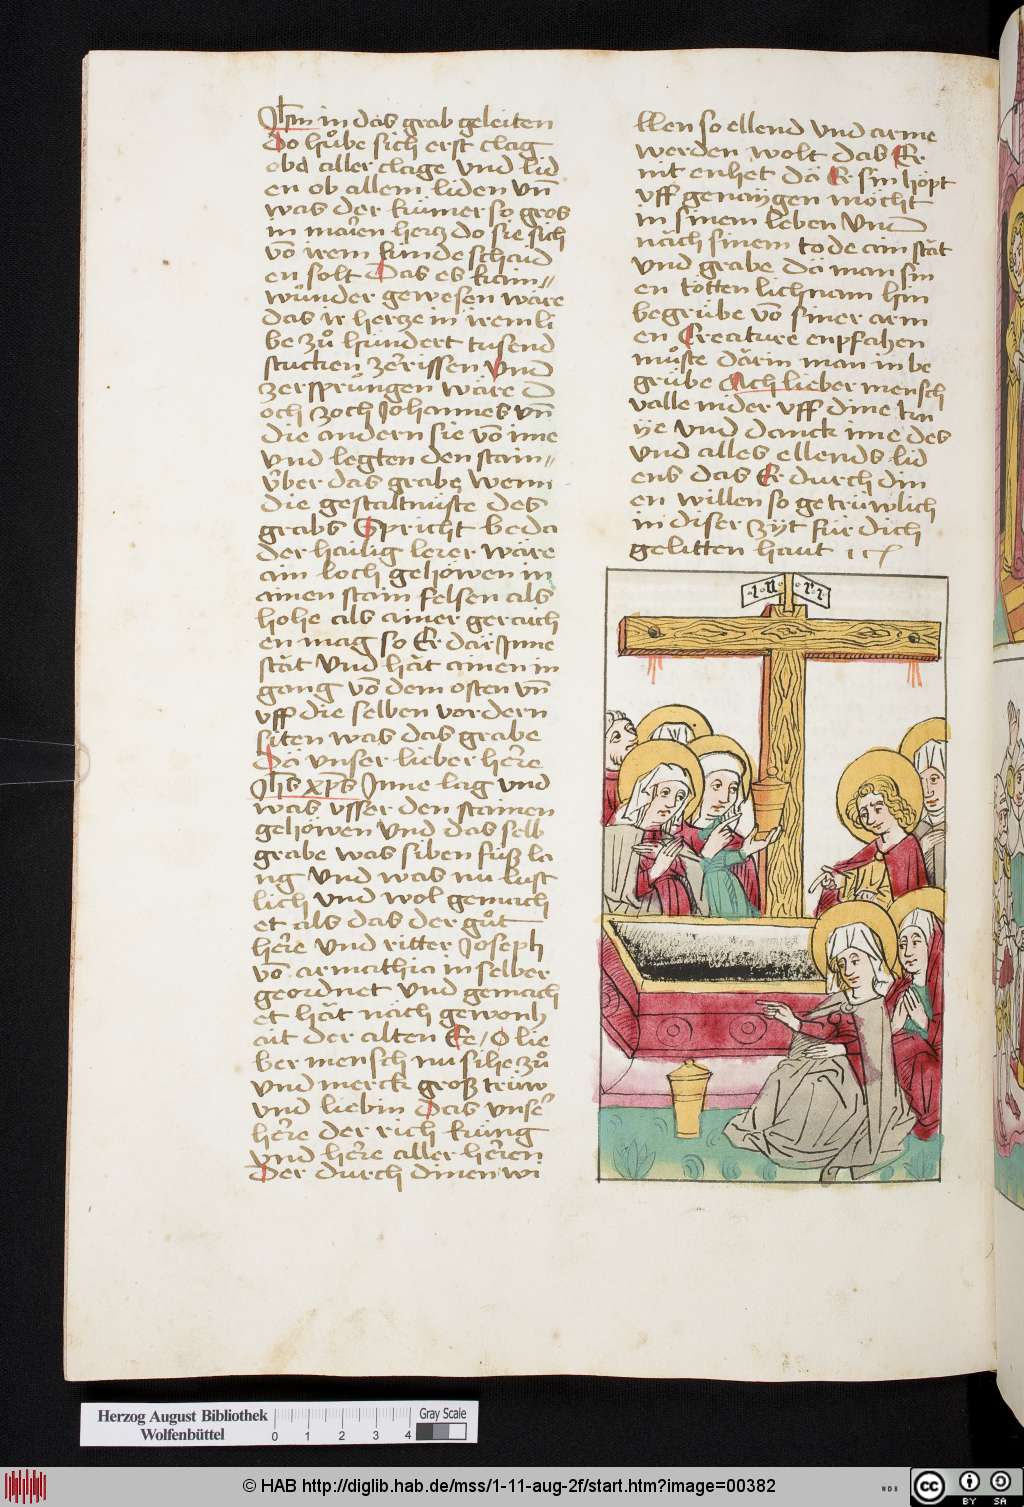 Jhm in das grab geleiten
Do hůbe sich erst clag
oba aller clage vnd lid
en ob allem liden vn̄
was der kumer so gros
in maien hercz do sie sich
vō irem kinde schaid
en solt Das es kain=
wunder gewesen wäre
das ir hercze in irem li
be zů hundert tusend
stucken zerissen Vnd
zersprungen wäre D
och zoch Johannes vn̄
die andern sie vō ime
vnd legten den stain=
über das grabe wenn
die gestaltnuste des
grabs Spricht beda
der hailig lerer wäre
ain loch gehöwen in
ainen stain felsen als
hohe als ainer geraich
en mag so Er dar Jnne
stät vnd hät ainen in
gang vō dem osten vn̄
vff die selben vordern
siten was das grabe
Dä vnser lieber here
Jhs xp̄s Jnne lag vnd
was vsser den stainen
gehöwen vnd das selb
grabe was siben fuß la
ng vnd was nu lust
lich vnd wol gemach
et als das der gůt
here vnd ritter Joseph
vō armathia in selber
geordnet vnd gemach
et hät näch gewonh
ait der alten Ee / O lie
ber mensch nu sihe zů
vnd merck groß trüw
vnd liebin Das vnser
here der rich küng
vnd here aller heren
Der durch dinen wi
llen so ellend vnd arme
werden wolt das Er
nit enhet dä Er sin höpt
vff genaygen möcht
in sinem leben Vnd
näch sinem tode ain stät
vnd grabe dä man sin
en totten lichnam hin
begrube vō siner arm
en Creature enpfahen
můste därin man in be
grube Ach lieber mensch
valle nider vff dine kn
ye vnd danck ime des
vnd alles ellends lid
ens das Er durch din
en willen so getrüwlich
in diser zyt für dich
gelitten haut
·I·N·R·I·
Herzog August Bibliothek
Wolfenbüttel
0 1 2 3 4
Gray Scale
© HAB http://diglib.hab.de/mss/1-11-aug-2f/start.htm?image=00382
WDB
cc BY SA